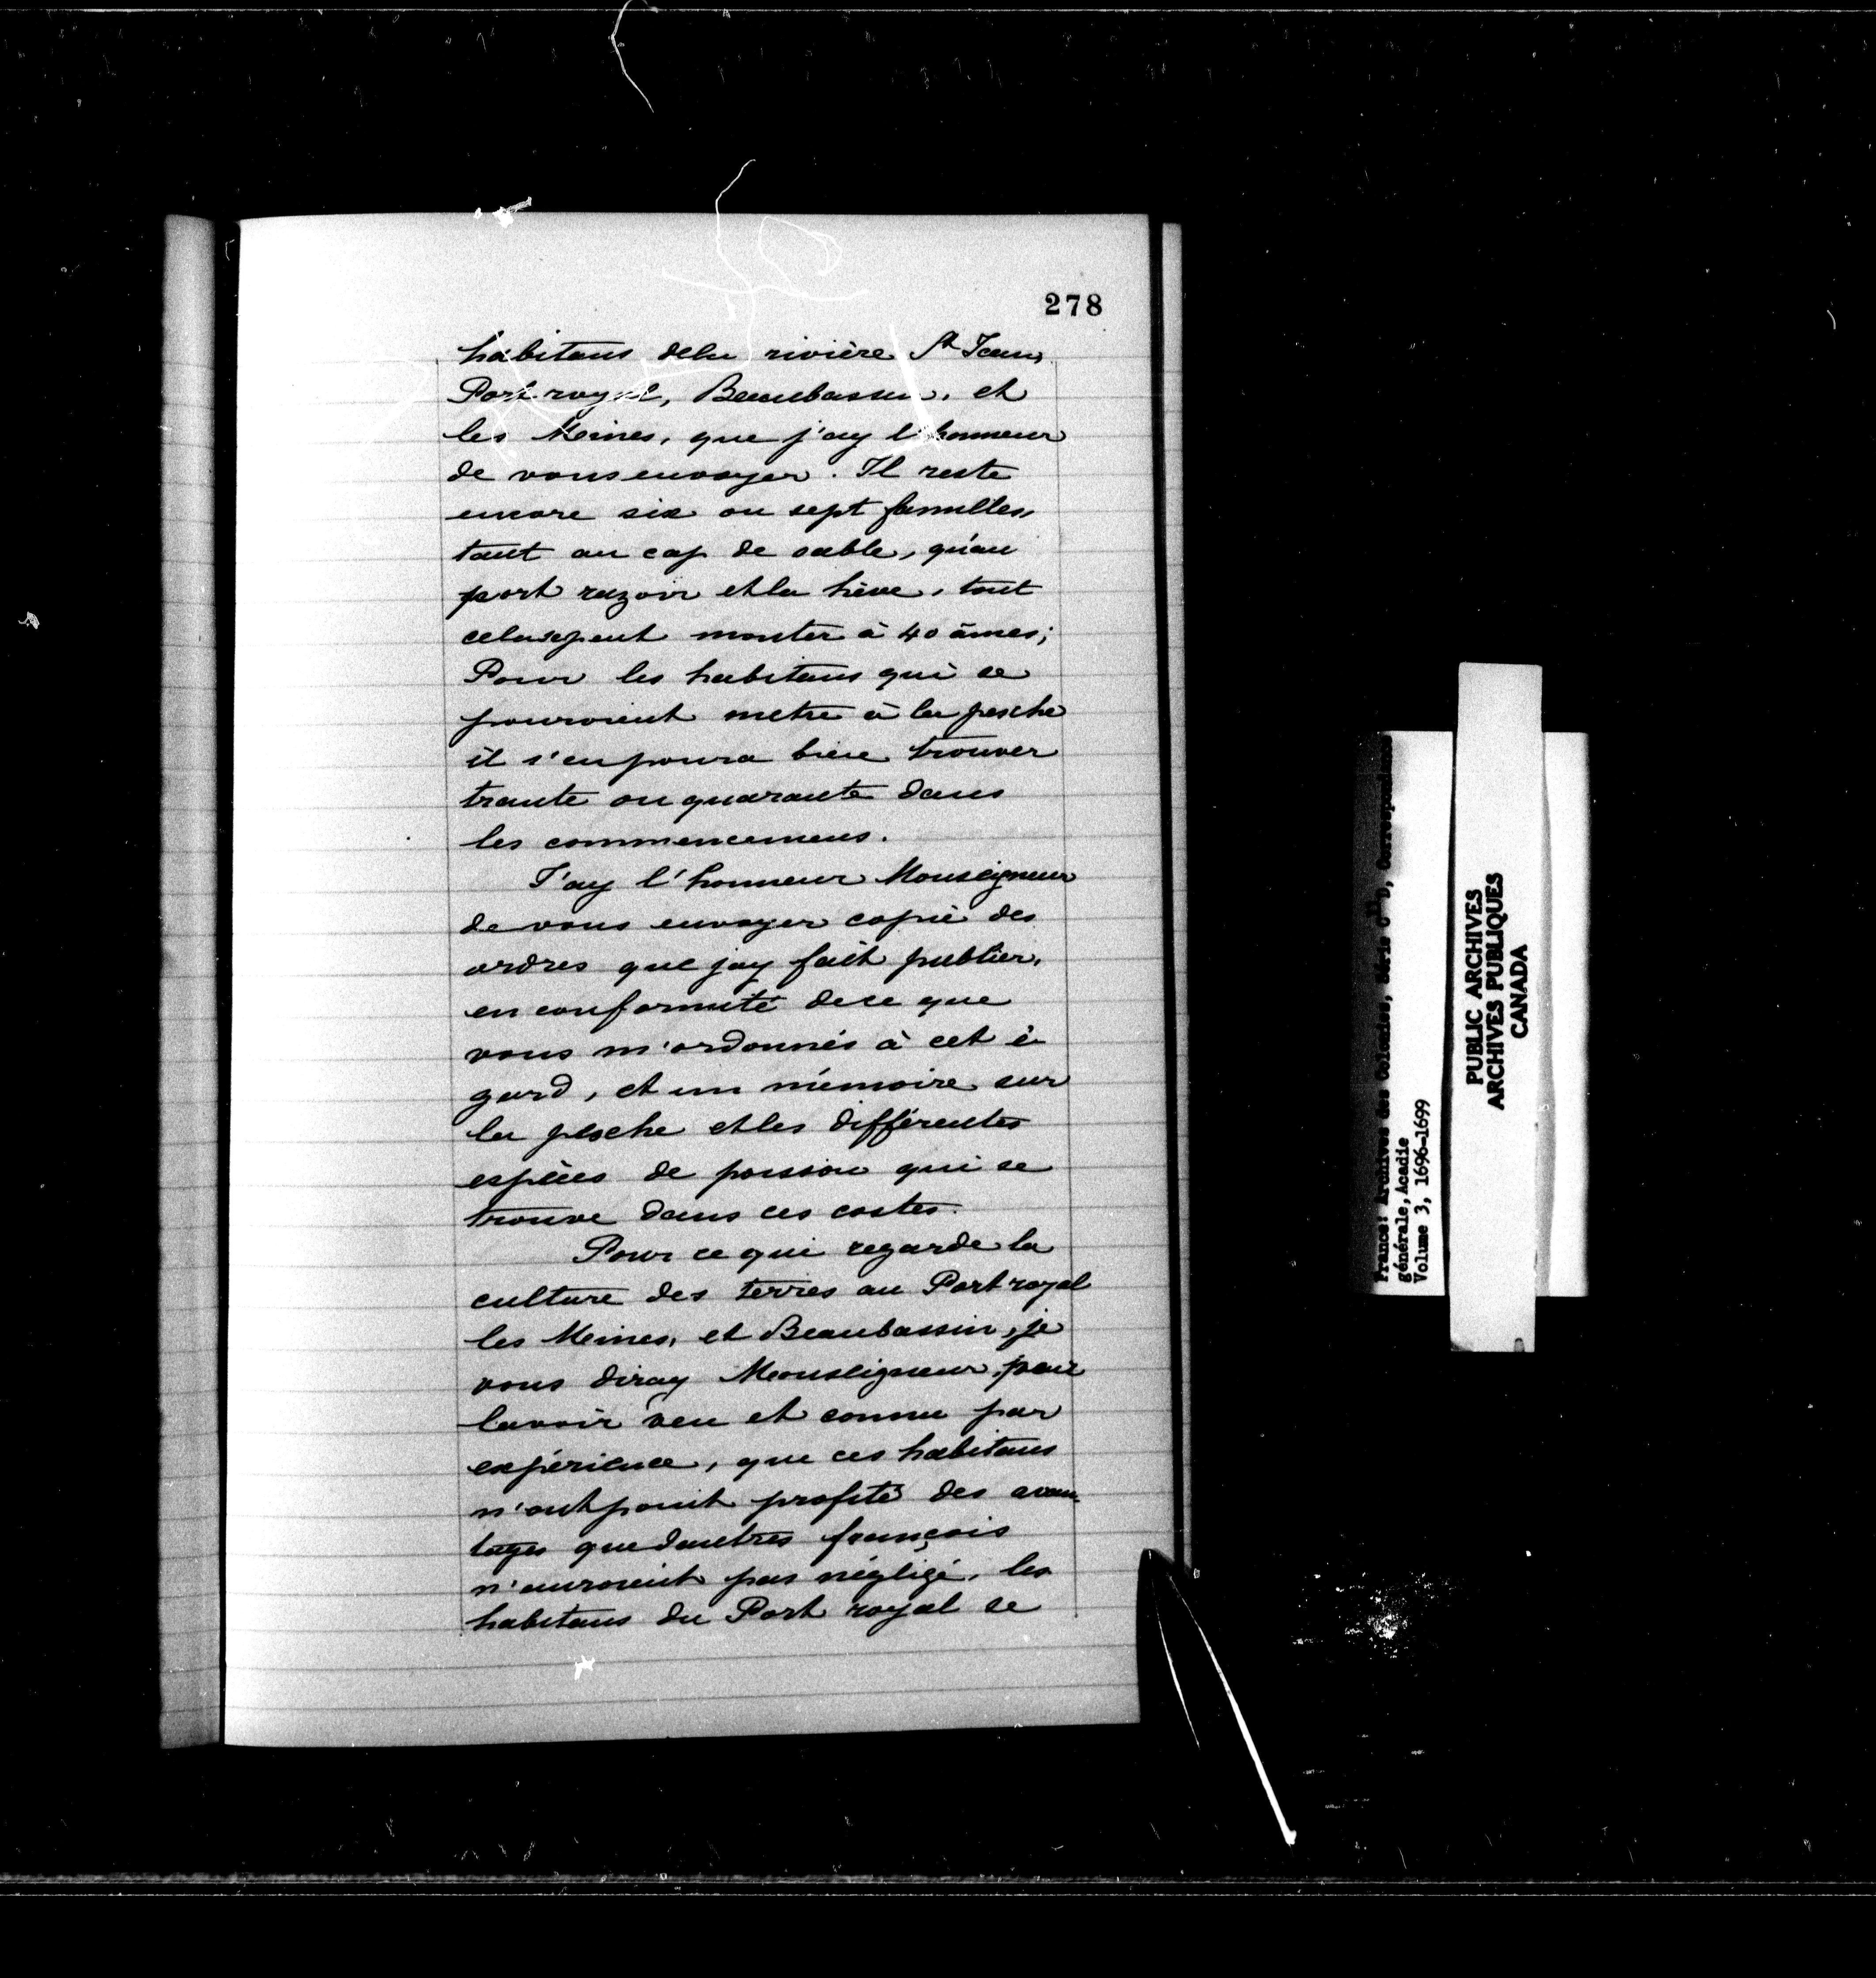 278
habitans dela rivière St Jean,
Port royal, Beaubassin, et
les Meines, que j'ay l'honneur
de vous envoyer. Il reste
encore six ou sept familles,
tant au cap de sable, qu'au
port razoir et la hève, tout
cela se peut monter à 40 âmes;
Pour les habitans qui se
pouroient metre à la pesche
il s'en poura bien trouver
trante ou quarante dans
les commencemens.
J'ay l'honneur Monseigneur
de vous envoyer copie des
ordres que jay fait publier,
en conformité dece que
vous m'ordonnés à cet é-
gard, et un mémoire sur
la pesche et les différentes
espèces de poisson qui se
trouve dans ces costes.
Pour ce qui regarde la
culture des terres au Port royal
les Meines, et Beaubassin, je
vous diray Monseigneur, pour
lavoir veu et connu par
expérience, que ces habitans
n'ont point profité des avan-
tages que dautres françois
n'auroient pas négligé, les
habitans du Port royal se
France: Archives des Colonies, Série C11D, Correspondance
générale, Acadie
Volume 3, 1696-1699
PUBLIC ARCHIVES
ARCHIVES PUBLIQUES
CANADA